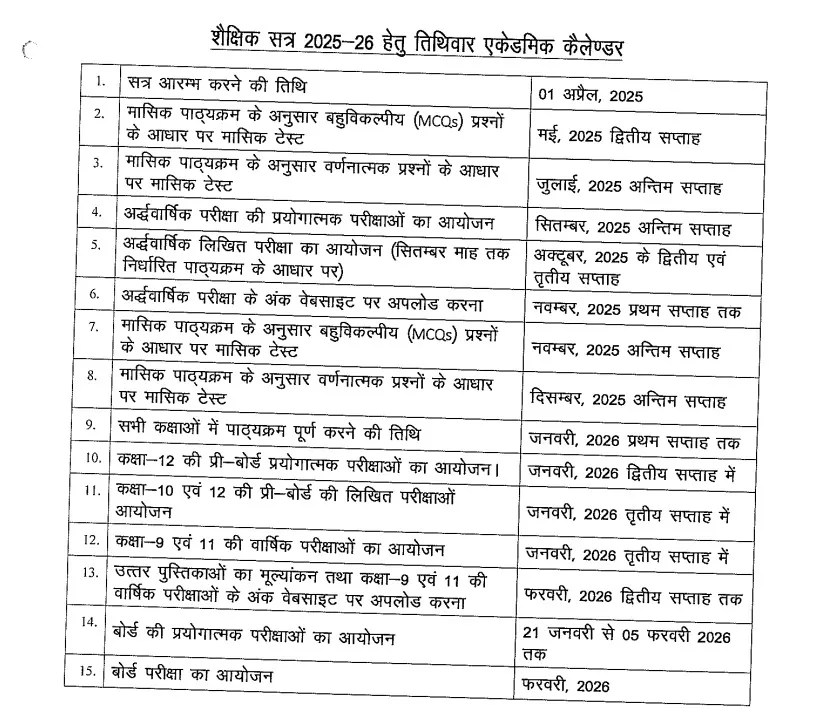 शैक्षिक सत्र 2025–26 हेतु तिथिवार एकेडमिक कैलेण्डर
1. सत्र आरम्भ करने की तिथि 01 अप्रैल, 2025
2. मासिक पाठ्यक्रम के अनुसार बहुविकल्पीय (MCQs) प्रश्नों
के आधार पर मासिक टेस्ट मई, 2025 द्वितीय सप्ताह
3. मासिक पाठ्यक्रम के अनुसार वर्णनात्मक प्रश्नों के आधार
पर मासिक टेस्ट जुलाई, 2025 अन्तिम सप्ताह
4. अर्द्धवार्षिक परीक्षा की प्रयोगात्मक परीक्षाओं का आयोजन सितम्बर, 2025 अन्तिम सप्ताह
5. अर्द्धवार्षिक लिखित परीक्षा का आयोजन (सितम्बर माह तक अक्टूबर, 2025 के द्वितीय एवं
निर्धारित पाठ्यक्रम के आधार पर) तृतीय सप्ताह
6. अर्द्धवार्षिक परीक्षा के अंक वेबसाइट पर अपलोड करना नवम्बर, 2025 प्रथम सप्ताह तक
7. मासिक पाठ्यक्रम के अनुसार बहुविकल्पीय (MCQs) प्रश्नों
के आधार पर मासिक टेस्ट नवम्बर, 2025 अन्तिम सप्ताह
8. मासिक पाठ्यक्रम के अनुसार वर्णनात्मक प्रश्नों के आधार
पर मासिक टेस्ट दिसम्बर, 2025 अन्तिम सप्ताह
9. सभी कक्षाओं में पाठ्यक्रम पूर्ण करने की तिथि जनवरी, 2026 प्रथम सप्ताह तक
10. कक्षा–12 की प्री–बोर्ड प्रयोगात्मक परीक्षाओं का आयोजन। जनवरी, 2026 द्वितीय सप्ताह में
11. कक्षा–10 एवं 12 की प्री–बोर्ड की लिखित परीक्षाओं
आयोजन जनवरी, 2026 तृतीय सप्ताह में
12. कक्षा–9 एवं 11 की वार्षिक परीक्षाओं का आयोजन जनवरी, 2026 तृतीय सप्ताह में
13. उत्तर पुस्तिकाओं का मूल्यांकन तथा कक्षा–9 एवं 11 की
वार्षिक परीक्षाओं के अंक वेबसाइट पर अपलोड करना फरवरी, 2026 द्वितीय सप्ताह तक
14. बोर्ड की प्रयोगात्मक परीक्षाओं का आयोजन 21 जनवरी से 05 फरवरी 2026
तक
15. बोर्ड परीक्षा का आयोजन फरवरी, 2026